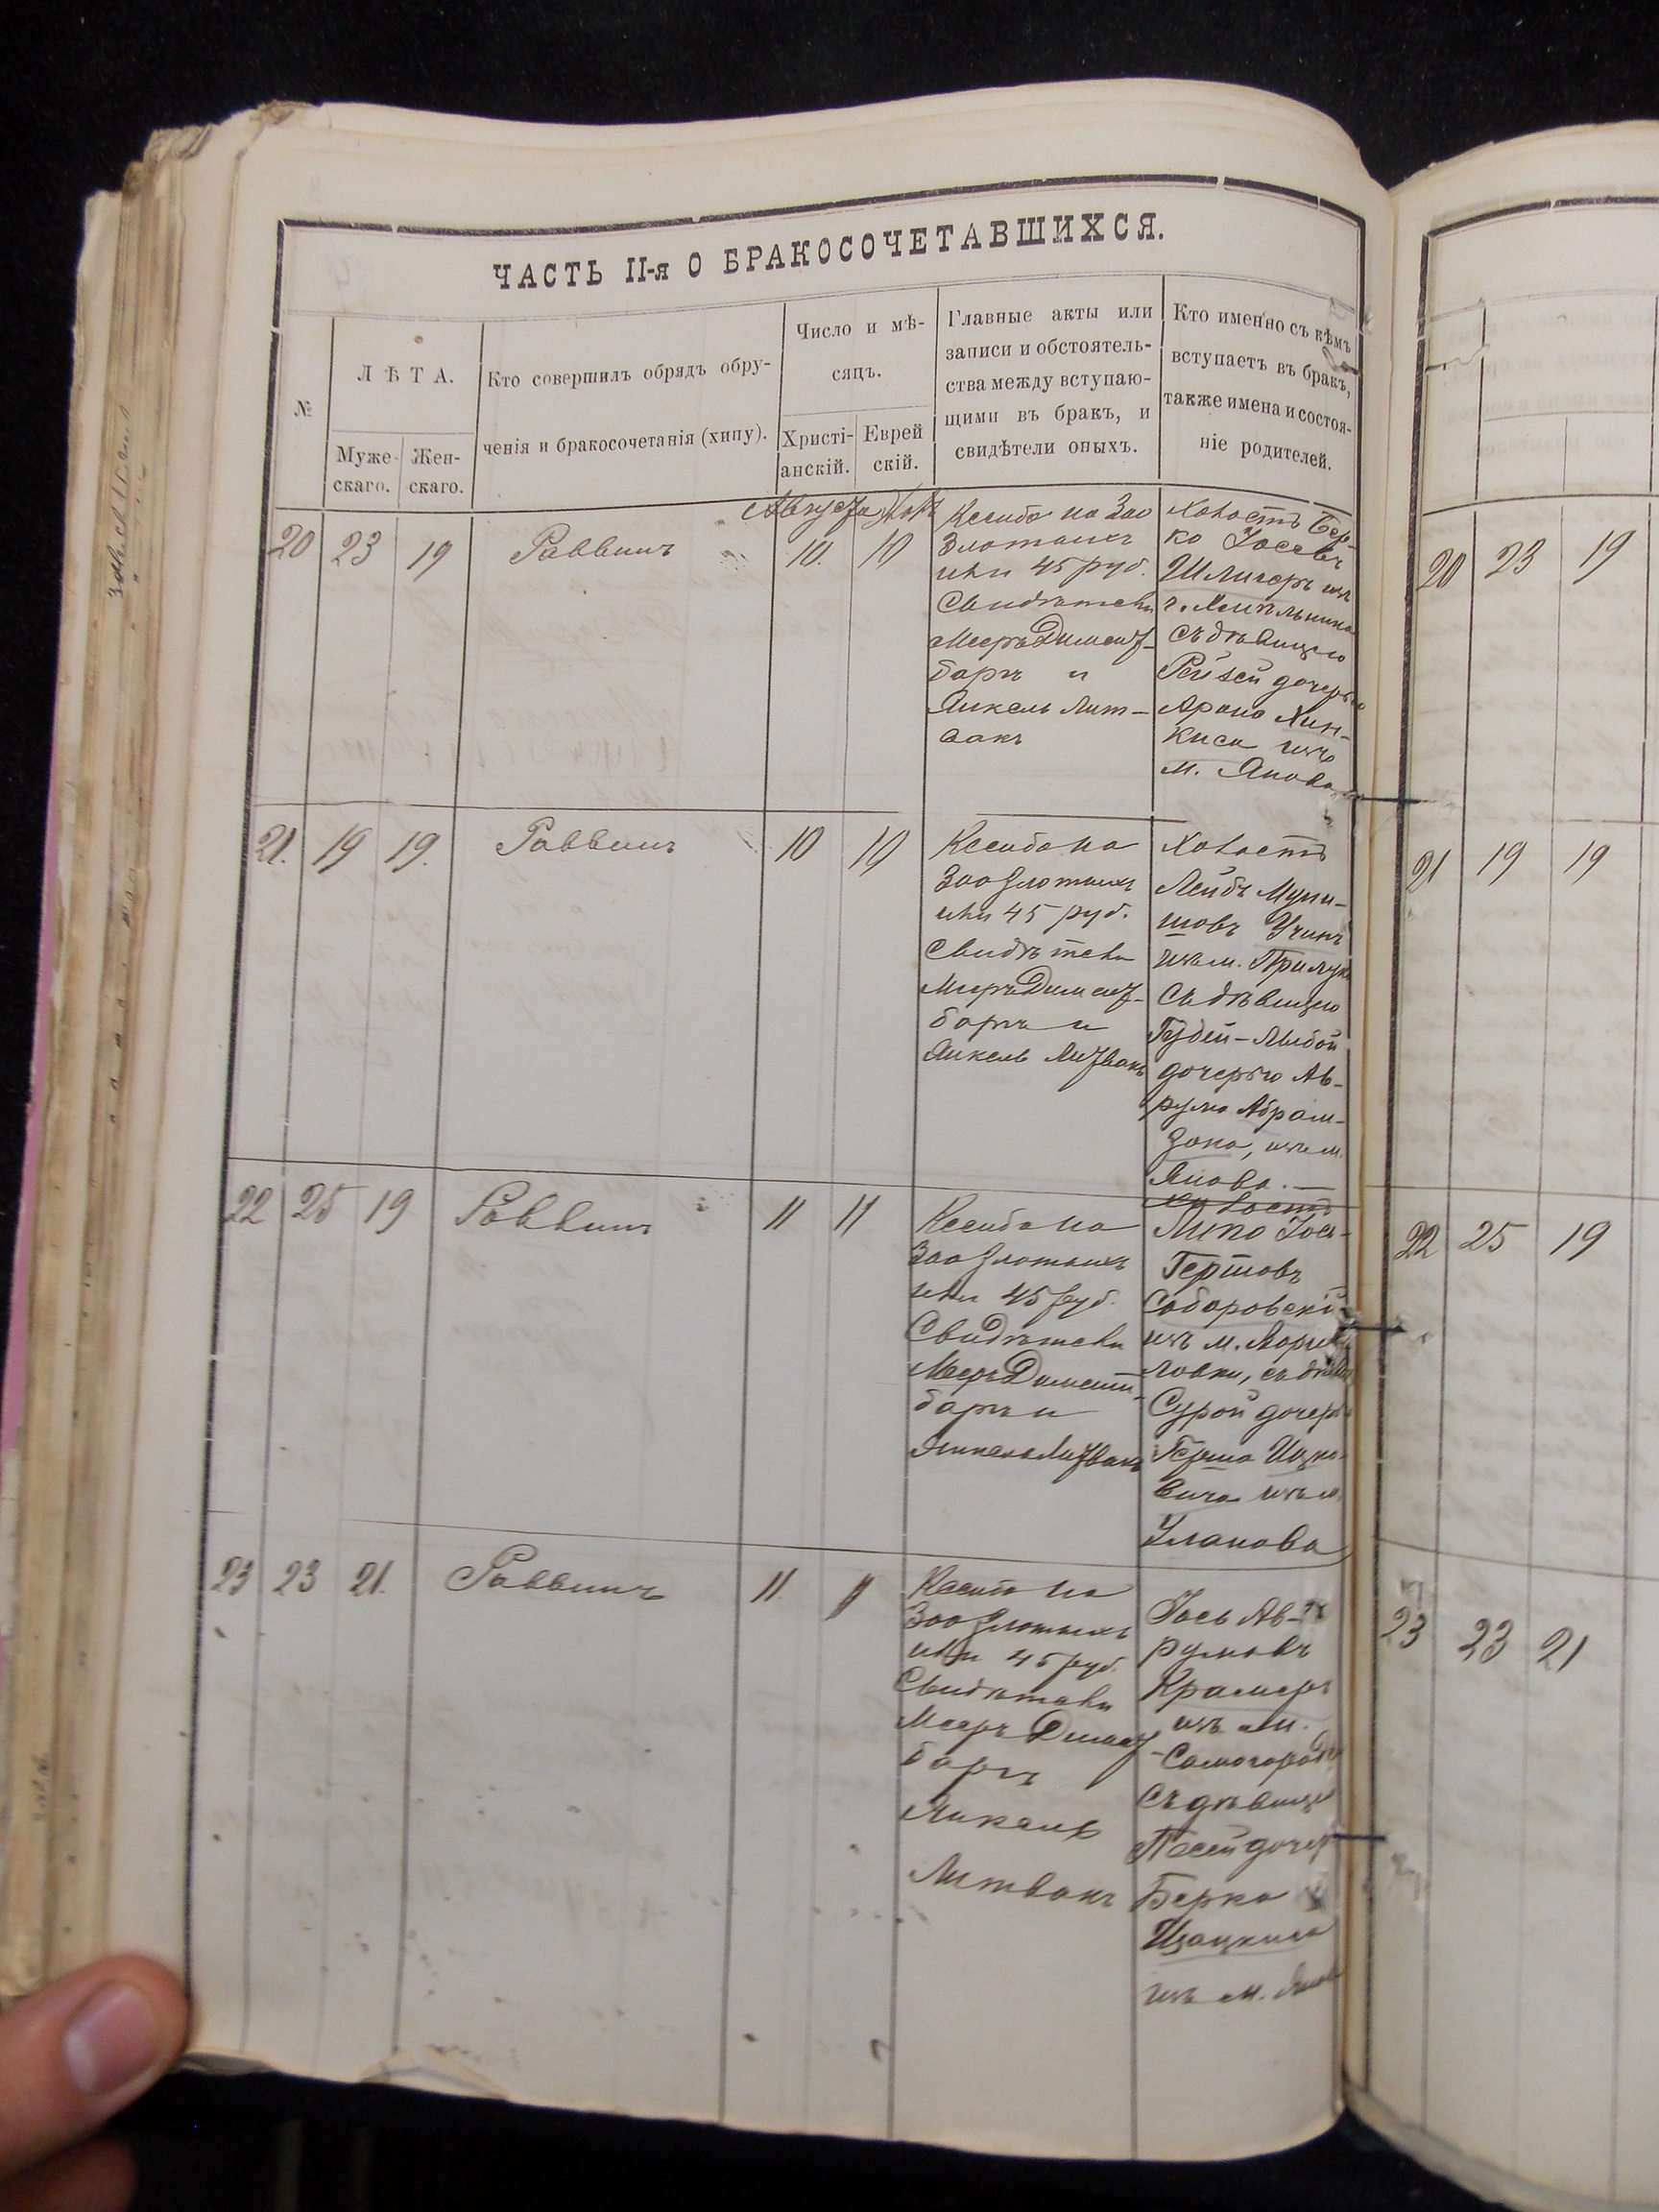 ЧАСТЬ II-я О БРАКОСОЧЕТАВШИХСЯ.
№
ЛѢТА.
Муже-
скаго.
Жен-
скаго.
Кто совершилъ обрядъ обру-
ченія и бракосочетанія (хипу).
Число и мѣ-
сяцъ.
Христі-
анскій.
Еврей
скій.
Главные акты или
записи и обстоятель-
ства между вступаю-
щими въ бракъ, и
свидѣтели оныхъ.
Кто именно съ кѣмъ
вступаетъ въ бракъ,
также имена и состоя-
ніе родителей.
Августа
20 23 19 Раввинъ 10. 10
Ксиба на 300
Злотыхъ
или 45 руб.
Свидѣтели
Мееръ Димент-
барг и
Янкель Лит-
вакъ
Холостъ Бер-
ко Іосевъ
Шлигеръ изъ
съ дѣвицею
Рейзей дочерью
Арона Хин-
киса изъ
м. Янова
21. 19 19. Раввинъ 10 10
Ксиба на
300 злотыхъ
или 45 руб.
Свидѣтели
Мееръ Димент-
баргъ и
Янкель Литвакъ
Холостъ
Лейбъ Муни-
шовъ
изъ м. Прилукъ
съ дѣвицею
дочерью Ав-
рума Абрам-
зона, изъ м.
Янова. —
22 25 19 Раввинъ 11 11
Ксиба на
300 злотыхъ
или 45 руб.
Свидѣтели
Мееръ Димент-
баргъ и
Янкель Литвакъ
Холостъ
Липа Іось-
Гершовъ
Сабаровскій
изъ м.
ловки, съ дѣвиц
Сурой дочерь
Герша Ицко-
вича изъ м.
Уланова
23 23 21. Раввинъ 11. 11
Ксиба на
300 злотыхъ
или 45 руб.
Свидѣтели
Мееръ Димент
баргъ
Янкель
Литвакъ
Іось Ав-
румовъ
Крамеръ
изъ м.
Самогород
съ дѣвице
Песей дочер
Берка
Цацкиса
изъ м.
20 23 19
21 19 19
22 25 19
23 23 21